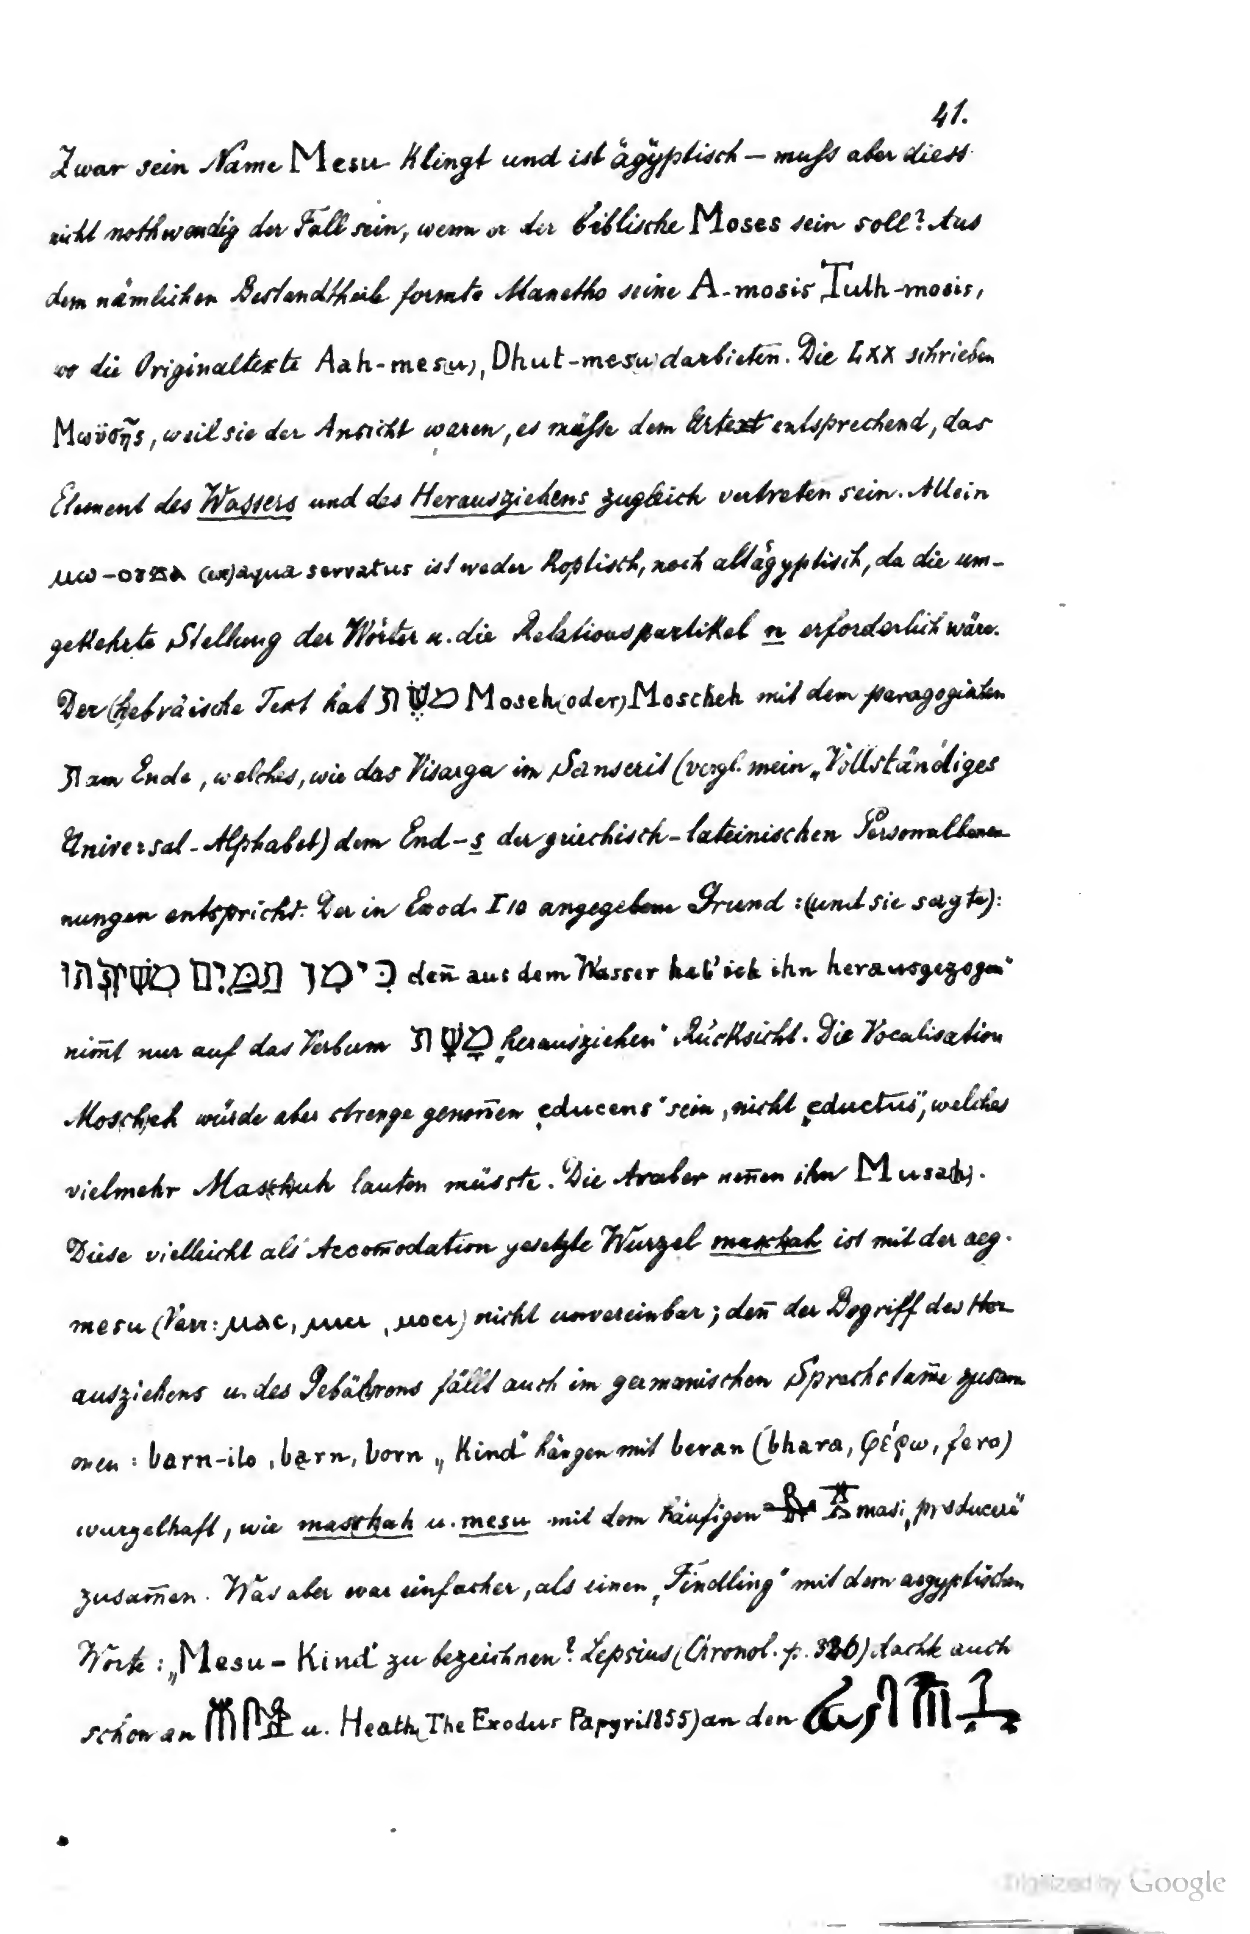 41.
Zwar sein Name Mesu klingt und ist ägyptisch – muſs aber diess
nicht nothwendig der Fall sein, wenn er der biblische Moses sein soll? Aus
dem nämlichen Bestandtheile formte Manetho seine A-mosis Tuth-mosis,
wo die Originaltexte Aah-mes(u), Dhut-mes(u) darbieten. Die LXX schrieben
Μωϋσῆς, weil sie der Ansicht waren, es müſse dem Urtext entsprechend, das
Element des Wassers und des Herausziehens zugleich vertreten sein. Allein
(ex) aqua servatus ist weder koptisch, noch altägyptisch, da die um-
gekehrte Stellung der Wörter u. die Relationspartikel n erforderlich wäre.
Der (hebräische Text hat מֹשֶׁה Moseh (oder) Moscheh mit dem paragogischen
ה am Ende, welches, wie das Visarga im Sanscrit (vergl. mein „Vollständiges
Universal-Alphabet) dem End-s der griechisch-lateinischen Personalbenen-
nungen entspricht. Der in Exod. I 10 angegebene Grund: (und sie sagte):
כִּי מִן הַמַּיִם מְשִׁיתִהוּ deñ aus dem Wasser hab' ich ihn herausgezogen“
nim̄t nur auf das Verbum מָשָׁה „herausziehen“ Rücksicht. Die Vocalisation
Moscheh würde aber strenge genom̄en „educens“ sein, nicht „eductus“, welches
vielmehr Maschuh lauten müsste. Die Araber nen̄en ihn Musa(h).
Diese vielleicht als Accom̄odation gesetzte Wurzel maschah ist mit der aeg.
mesu (Varr: ⲙⲁⲥ, ⲙⲓⲥⲓ, ⲙⲟⲥⲓ) nicht unvereinbar; deñ der Begriff des Her-
ausziehens u. des Gebährens fällt auch im germanischen Sprachstam̄e zusam-
men: barn-ilo, bęrn, born „Kind“ hängen mit beran (bhara, φέρω, fero)
wurzelhaft, wie maschah u. mesu mit dem häufigen masi „producere“
zusam̄en. Was aber war einfacher, als einen „Findling“ mit dem aegyptischen
Worte: „Mesu – Kind“ zu bezeichnen? Lepsius (Chronol. p. 326) dachte auch
schon an u. Heath (The Exodus Papyri 1855) an den
Digitized by Google